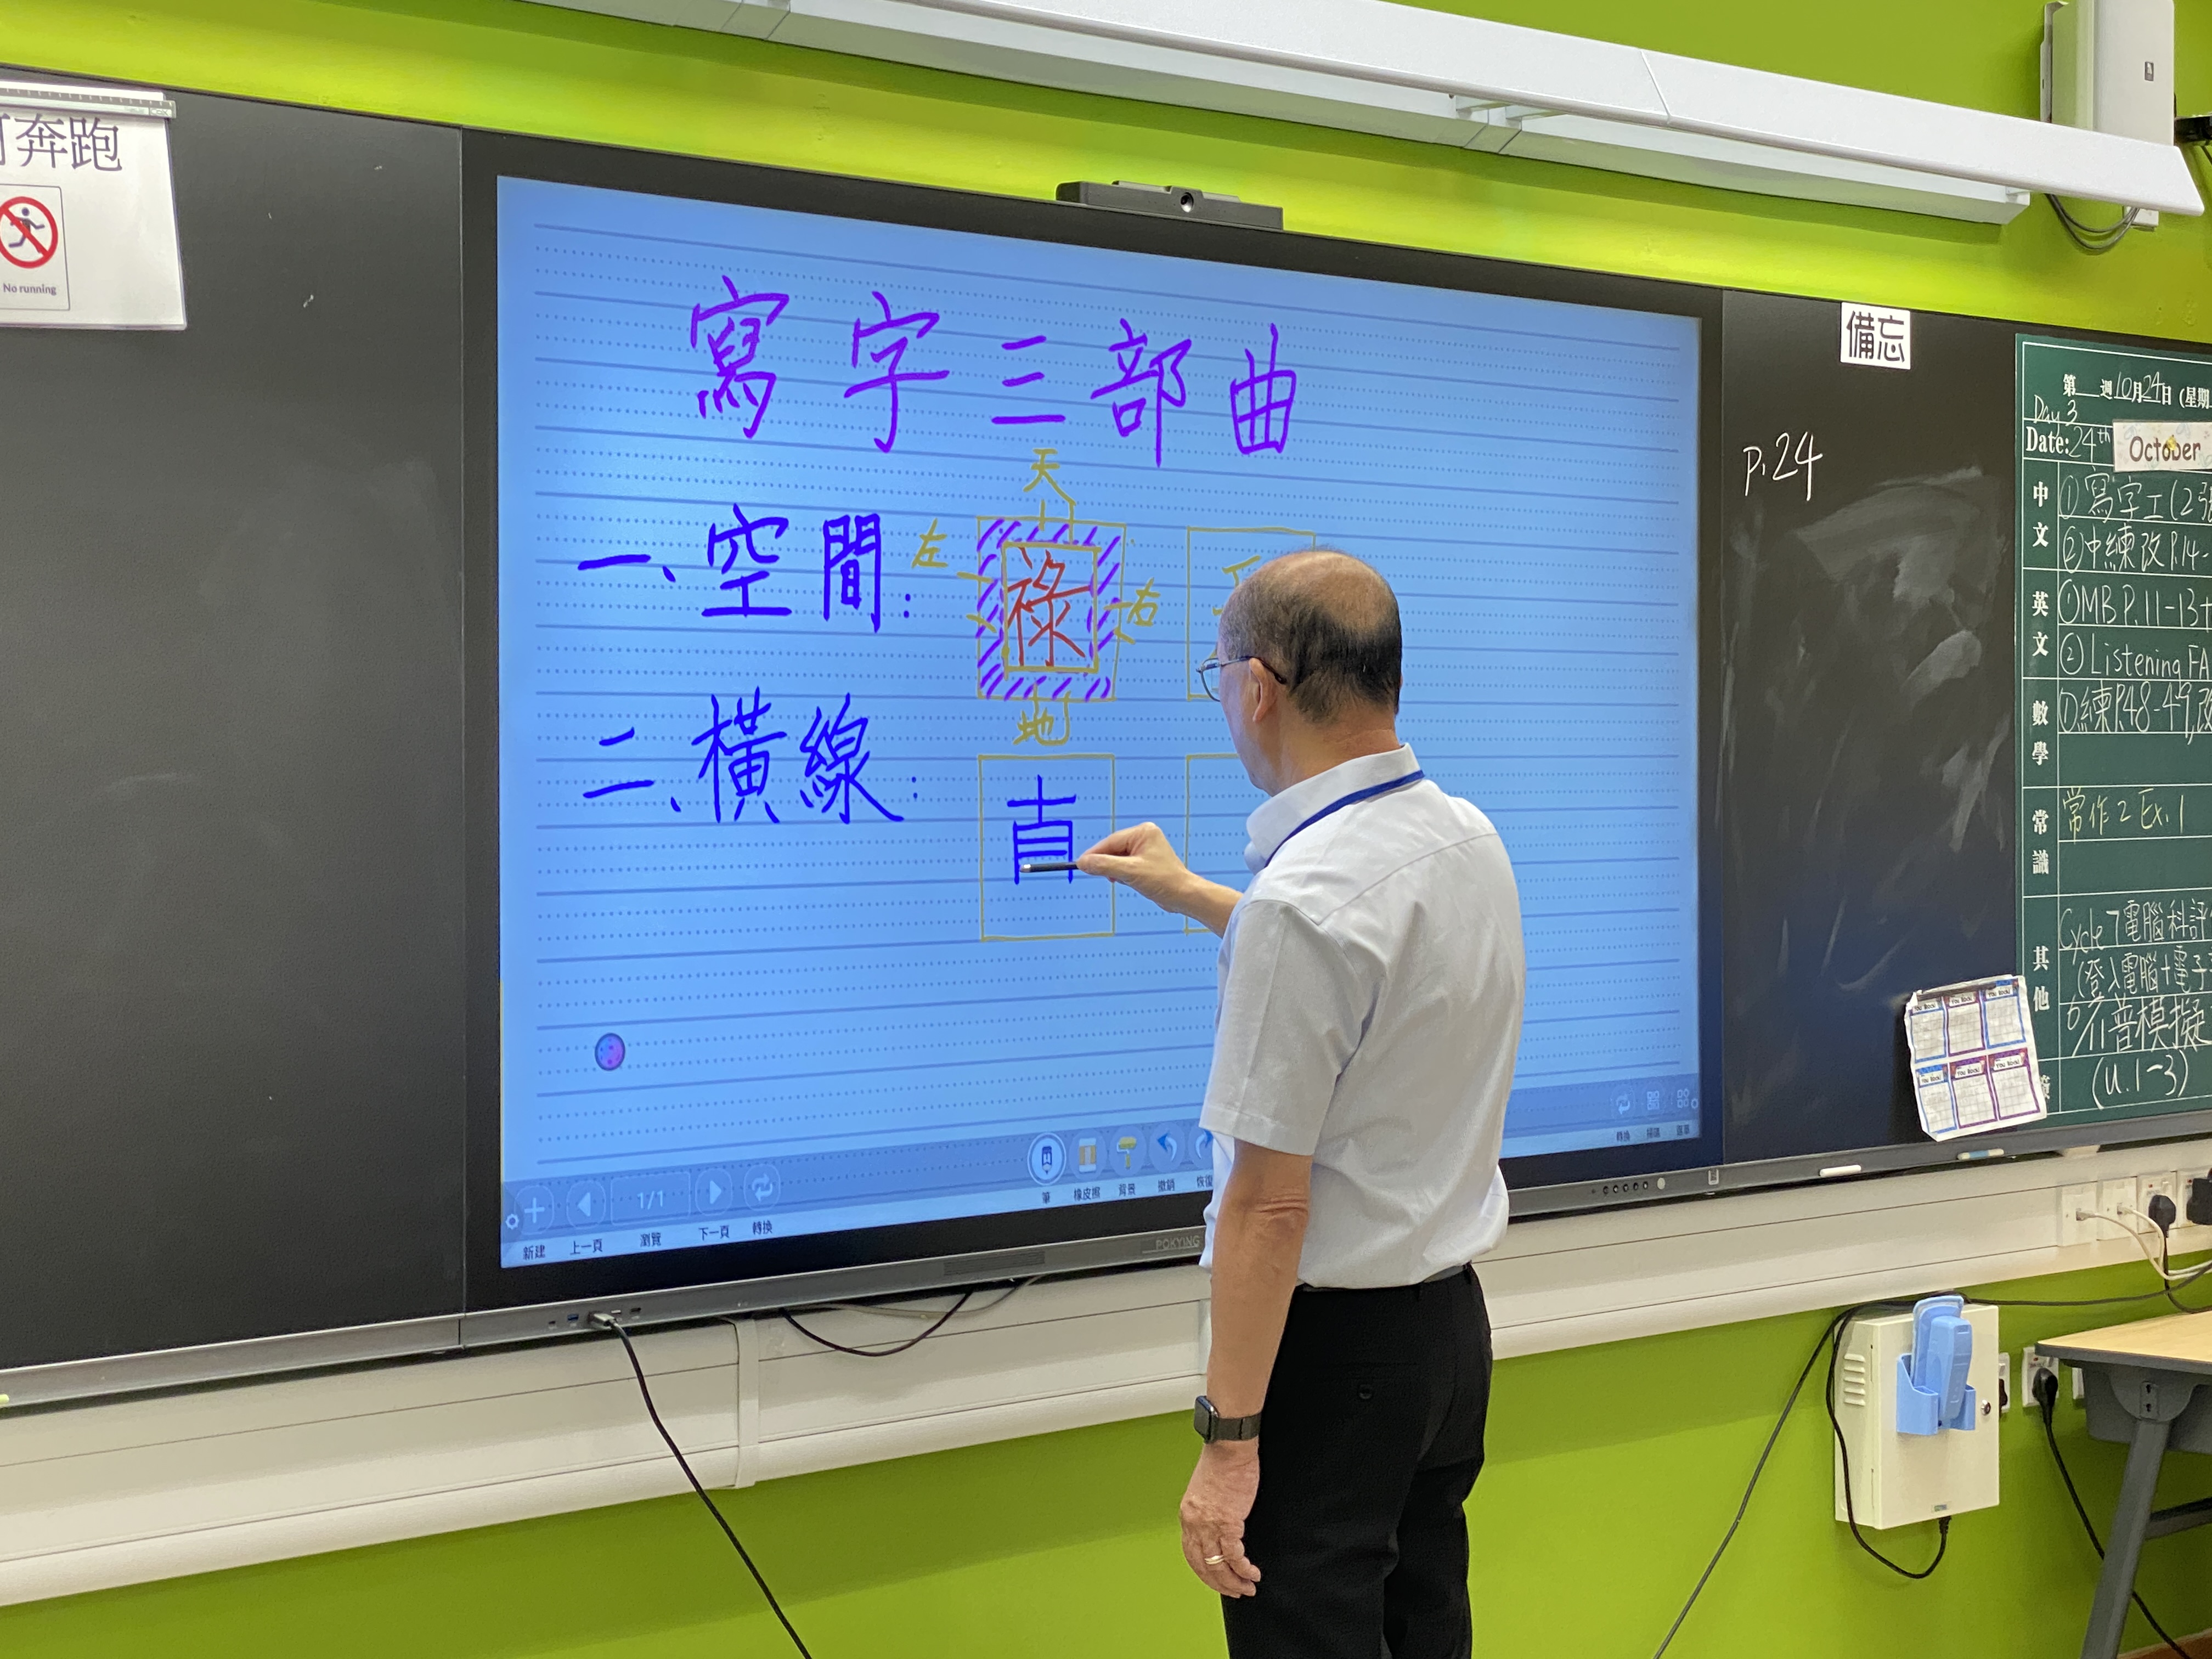 奔跑
No running
寫字三部曲
天
一、空間：
左
祿
右
地
二、橫線：
1/1
新建
上一頁
瀏覽
下一頁
轉換
筆
橡皮擦
背景
撤銷
恢復
轉換
POKYING
備忘
P.24
第 週10月24日（星期
Day 3
Date: 24th
October
中文
①寫字工(2張
②中練改P.14-
英文
①MB P.11-13+
②Listening FA
數學
①練P.48-49,改
常識
常作2 Ex.1
其他
Cycle 7電腦科評
(登入電腦+電子
普模擬
(u.1-3)